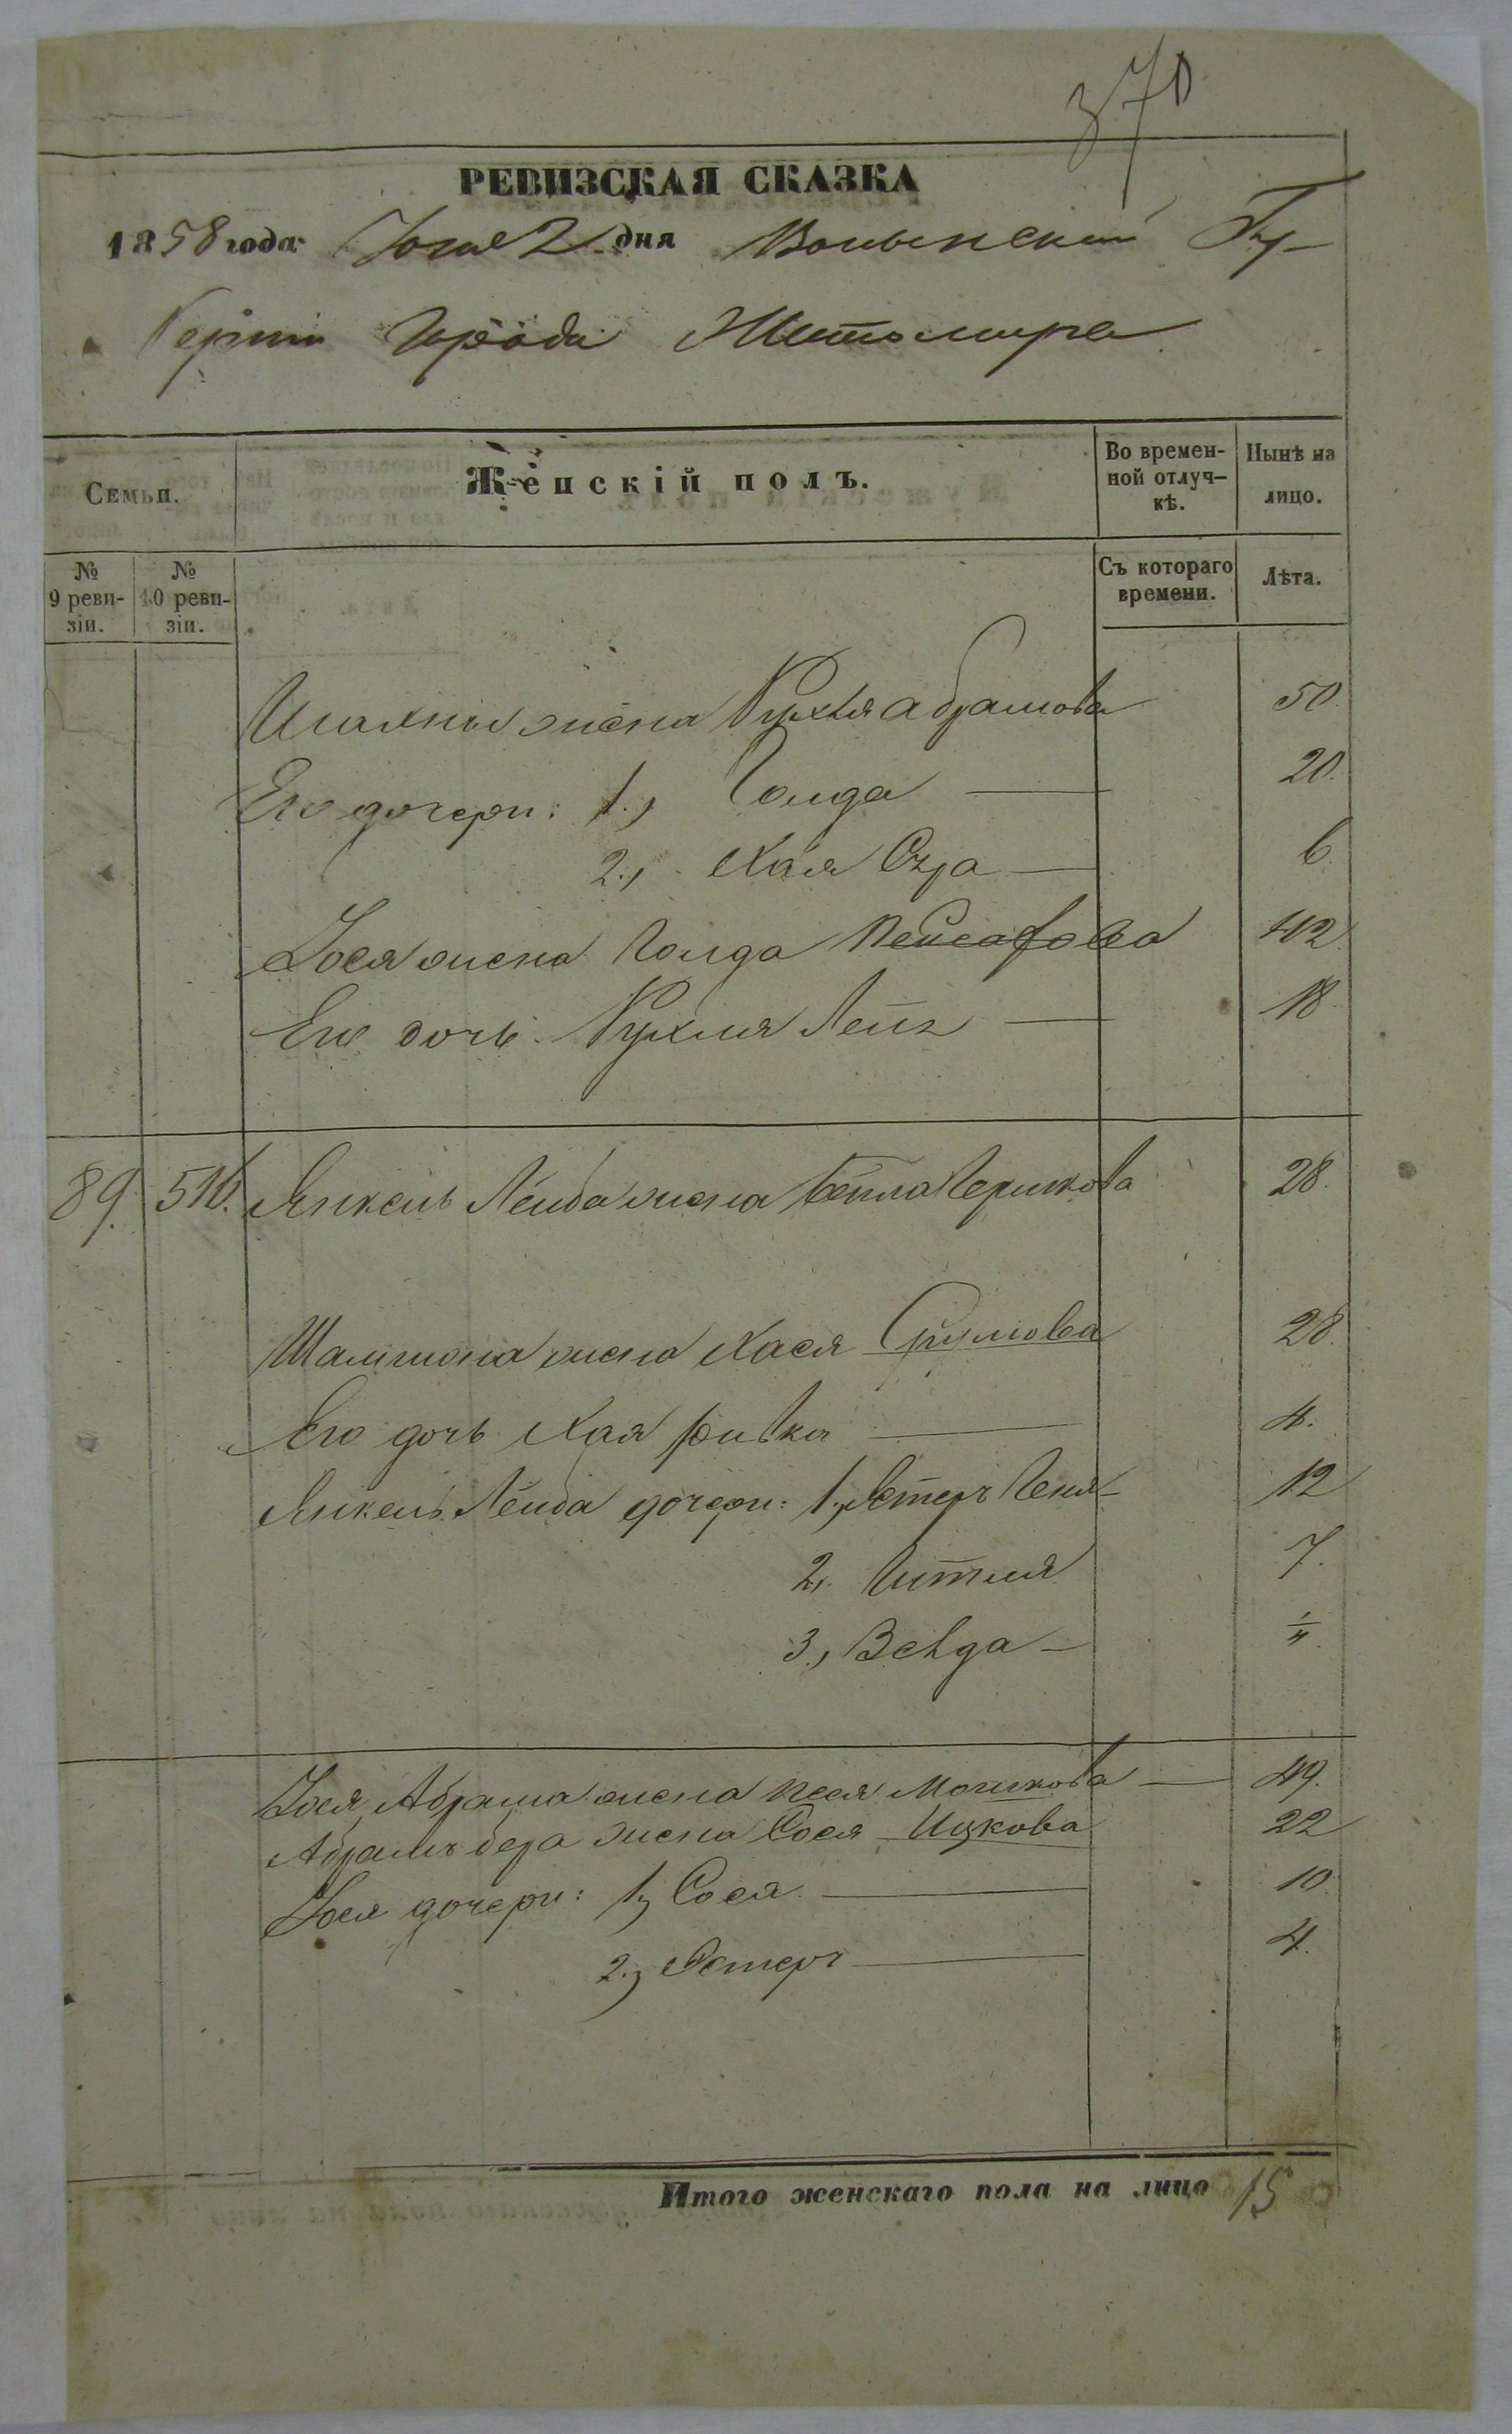 370
РЕВИЗСКАЯ СКАЗКА
1858 года Юня 2 дня Волынской Гу-
берніи Города Житомира
Семьи.
Женскій полъ.
Во времен-
ной отлуч-
кѣ.
Нынѣ на
лицо.
№
9 реви-
зіи.
№
10 реви-
зіи.
Съ котораго
времени.
Лѣта.
жена Рухля Абрамова 50.
Его дочери: 1., Голда 20.
2., Хая Сура 6.
Іося жена Голда Пейсахова 42
Его дочь Рухля Лея 18
89. 516. Янкель Лейба жена Бейла Бершкова 28.
Шамшона жена Хася Срулова 28.
Его дочь Хая Ривка 4.
Янкель Лейба дочери: 1., Эстеръ Геня 12
2., Гитля 7.
3., Велда
Іося Абрама жена Песя Мошкова 49.
Абрамъ Бера жена Сося Ицкова 22
Іося дочери: 1, Сося 10.
2., Эстеръ 4.
Итого женскаго пола на лицо 15